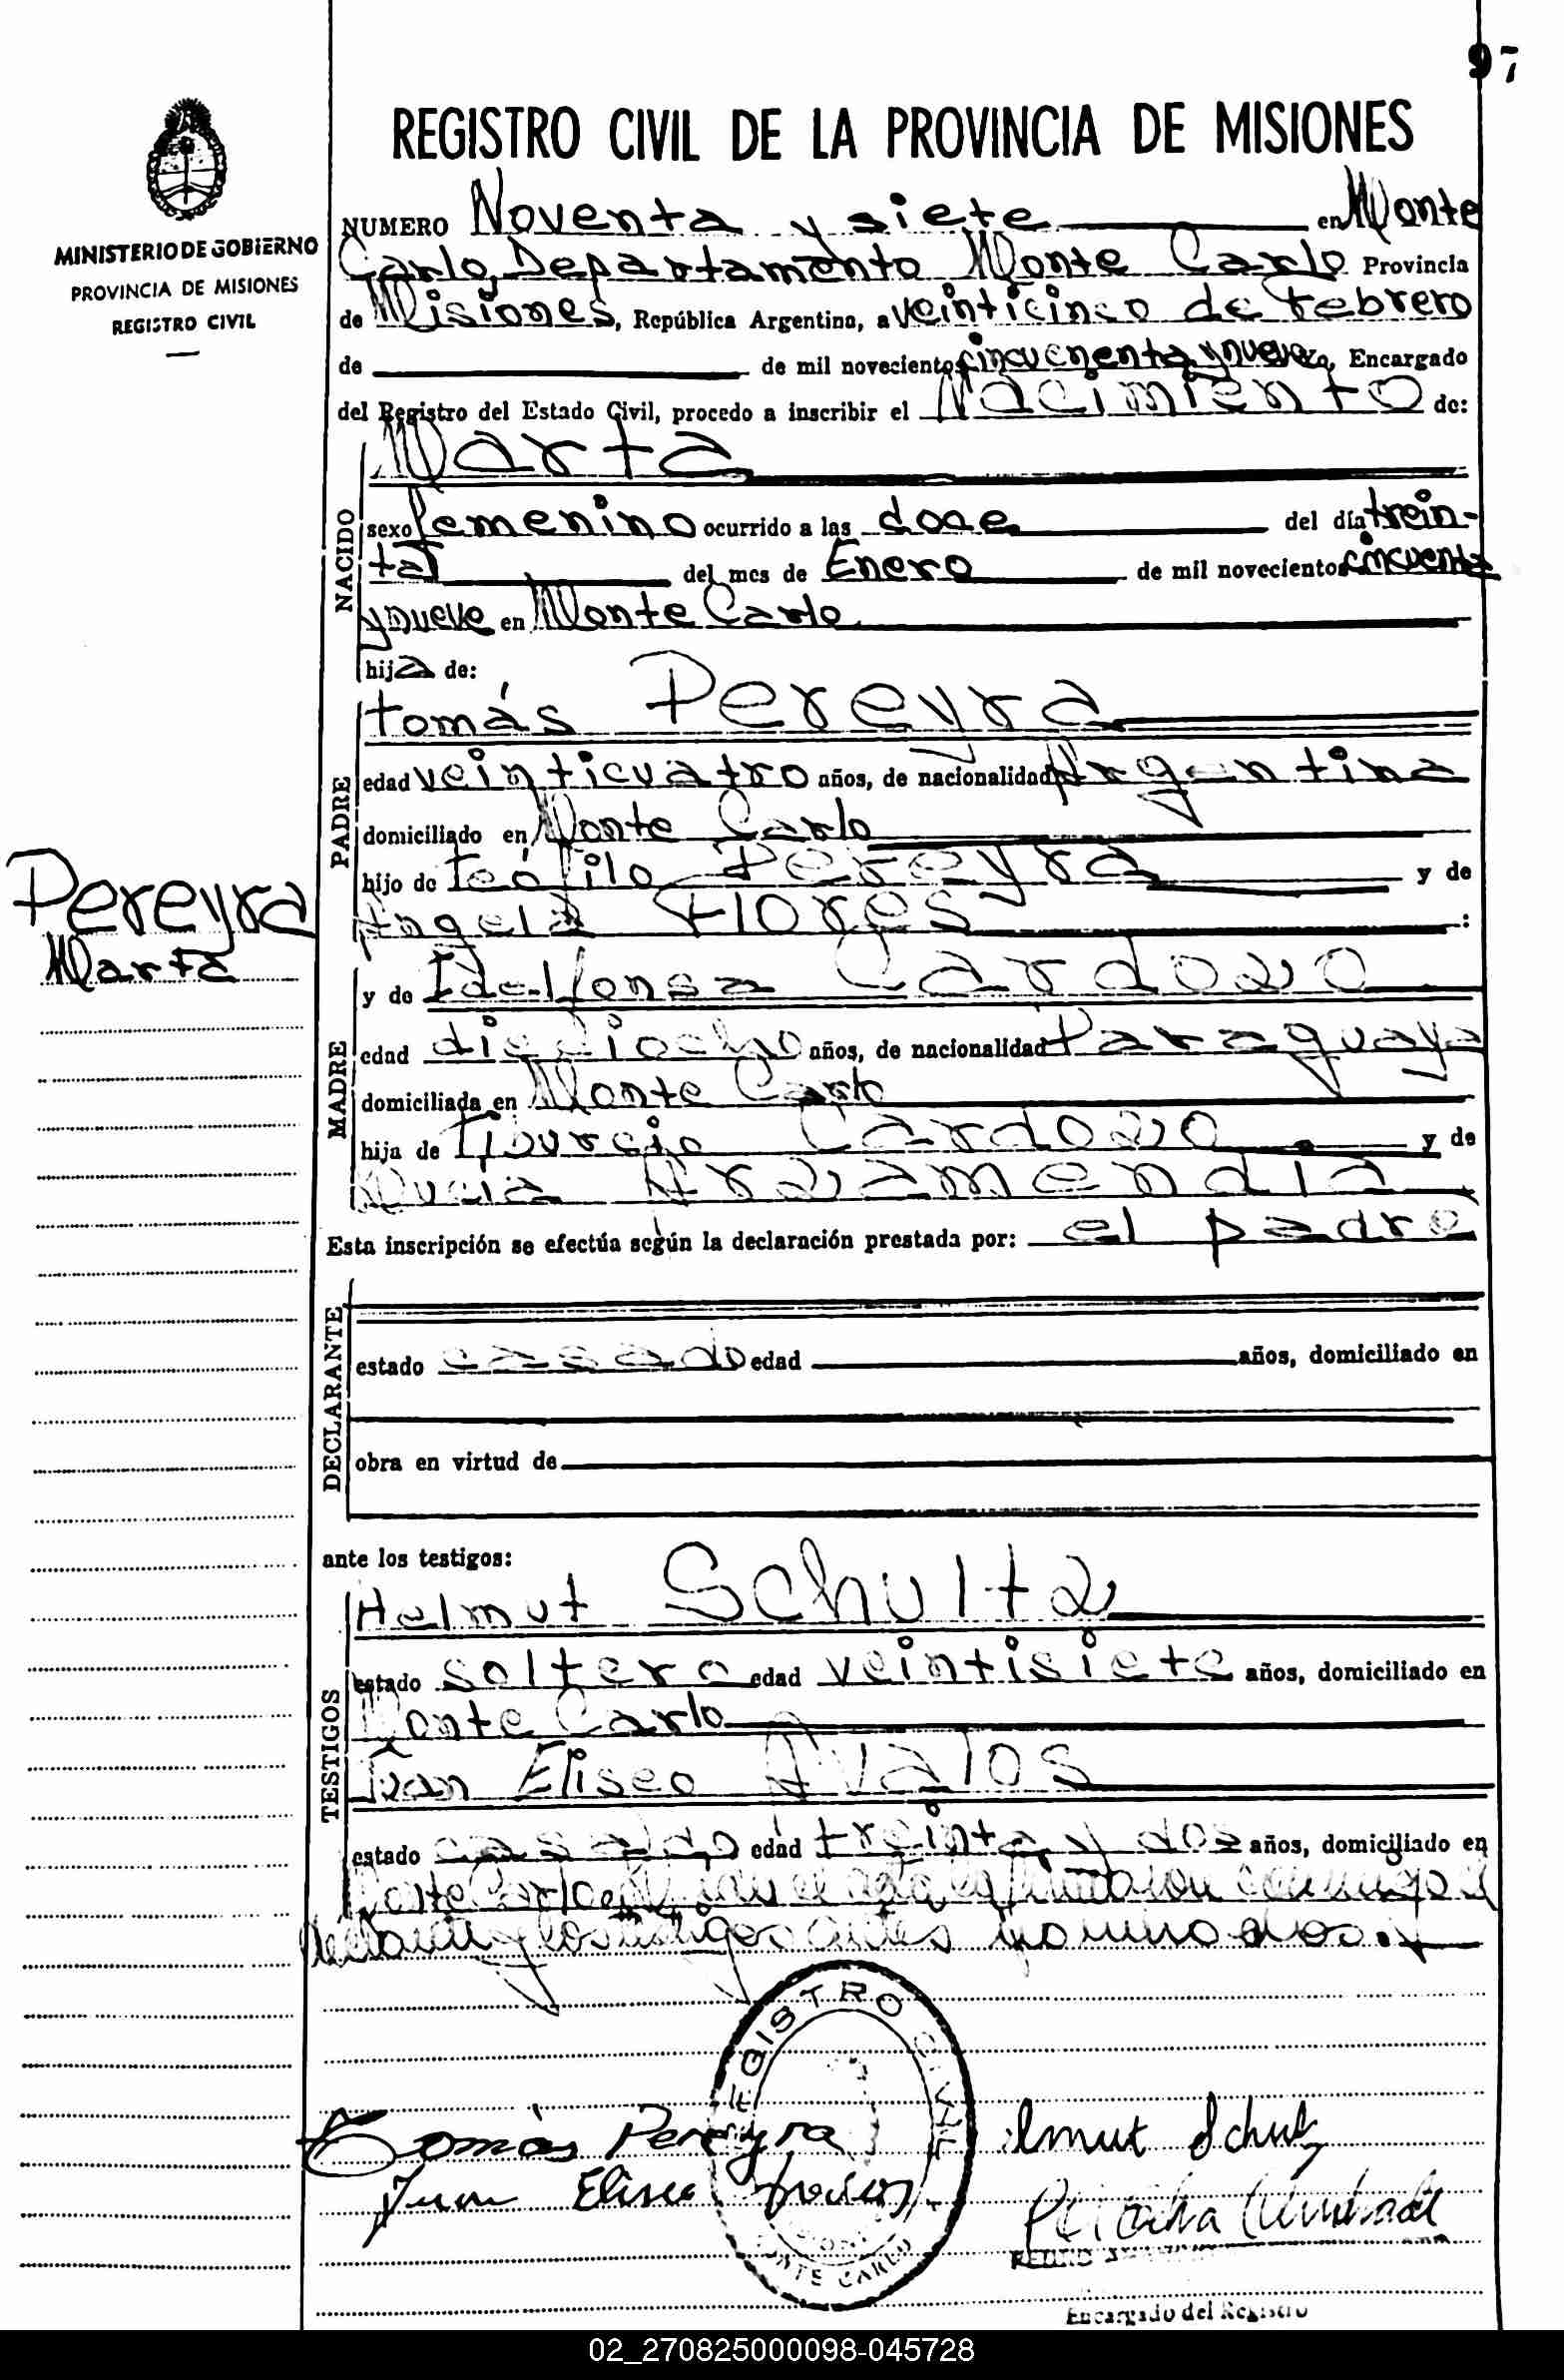 97
REGISTRO CIVIL DE LA PROVINCIA DE MISIONES
MINISTERIO DE GOBIERNO
PROVINCIA DE MISIONES
REGISTRO CIVIL
NUMERO Noventa y siete en Monte
Carlo, Departamento Monte Carlo Provincia
de Misiones, República Argentina, a veinticinco de Febrero
de de mil novecientos cincuenta y nueve Yo, Encargado
del Registro del Estado Civil, procedo a inscribir el Nacimiento de:
NACIDO
Marta
sexo femenino ocurrido a las doce del día trein-
ta del mes de Enero de mil novecientos cincuenta
y nueve en Monte Carlo
hija de:
PADRE
tomás Pereyra
edad veinticuatro años, de nacionalidad Argentina
domiciliado en Monte Carlo
hijo de teófilo Pereyra y de
Angela Flores :
Pereyra
Marta
MADRE
y de Idelfonsa Cardozo
edad dieciocho años, de nacionalidad Paraguaya
domiciliada en Monte Carlo
hija de Tiburcio Cardozo y de
Lucia Arzamendia
Esta inscripción se efectúa según la declaración prestada por: el padre
DECLARANTE
estado casado edad años, domiciliado en
obra en virtud de
ante los testigos:
TESTIGOS
Helmut Schultz
estado soltero edad veintisiete años, domiciliado en
Monte Carlo
Juan Eliseo Avalos
estado casado edad treinta y dos años, domiciliado en
Monte Carlo el acta la conmigo el
y los testigos antes nominados.
REGISTRO CIVIL
MONTE CARLO
Tomás Pereyra
Schultz
Juan Eliseo
Encargado del Registro
02_270825000098-045728